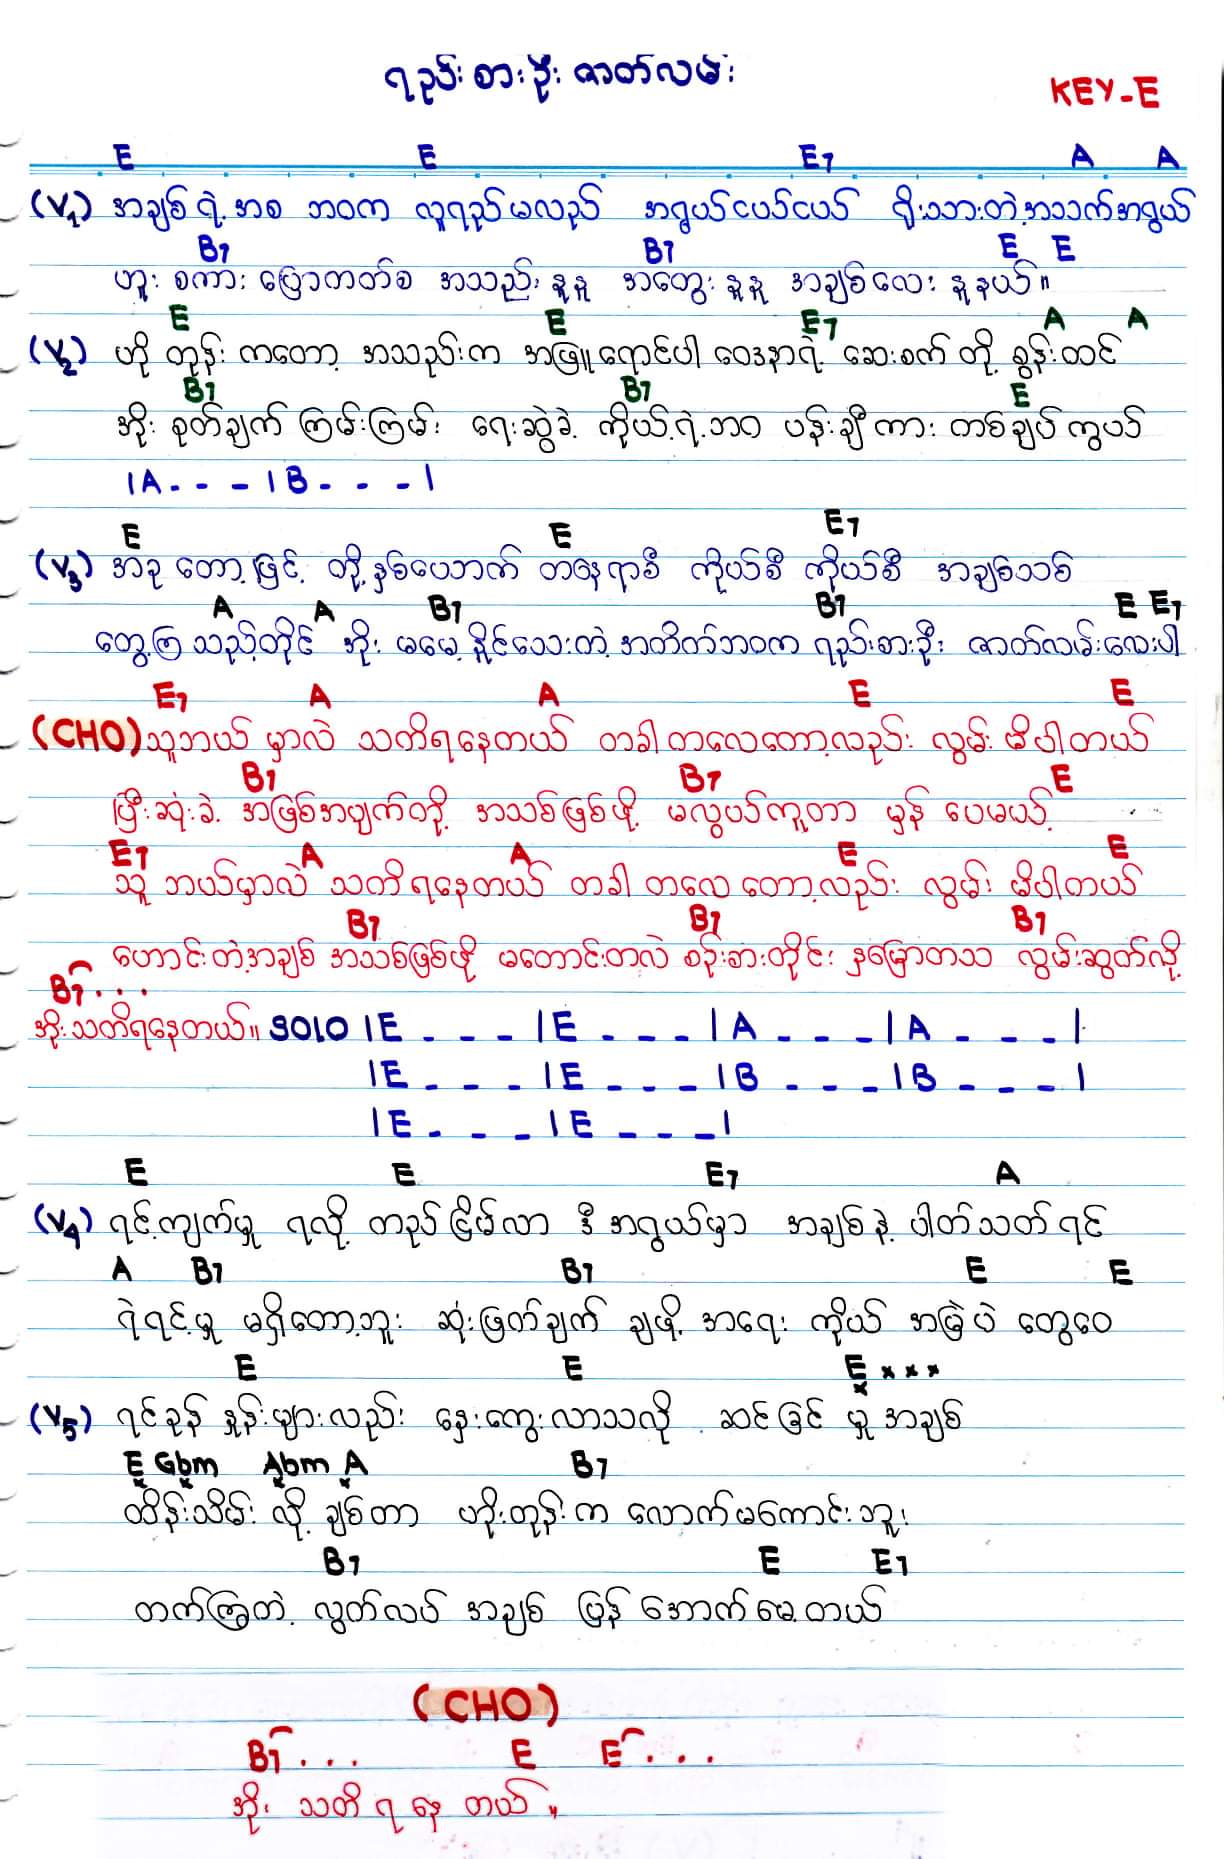 ရည်းစားဦး ဇာတ်လမ်း
KEY-E
E E E7 A A
(V1) အချစ်ရဲ့အစ ဘဝက လူရည်မလည် အရွယ်ငယ်ငယ် ရိုးသားတဲ့အသက်အရွယ်
B7 B7 E E
ဟူး စကား ပြောတတ်စ အသည်းနုနု အတွေးနုနု အချစ်လေး နုနယ်။
E E E7 A A
(V2) ဟို တုန်း ကတော့ အသည်းက အဖြူရောင်ပါ ဝေဒနာရဲ့ ဆေးစက် တို့ စွန်းထင်
B7 B7 E
အိုး စုတ်ချက် ကြမ်းကြမ်း ရေးဆွဲခဲ့ ကိုယ့်ရဲ့ဘဝ ပန်းချီကား တစ်ချပ်ကွယ်
|A - - - |B - - - |
E E E7
(V3) အခု တော့ဖြင့် တို့နှစ်ယောက် တနေရာစီ ကိုယ်စီ ကိုယ်စီ အချစ်သစ်
A A B7 B7 E E7
တွေ့ကြ သည့်တိုင် အိုး မမေ့နိုင်သေးတဲ့ အတိတ်ဘဝက ရည်းစားဦး ဇာတ်လမ်းလေးပါ
E7 A A E E
(CHO) သူဘယ် မှာလဲ သတိရနေတယ် တခါတလေတော့လည်း လွမ်း မိပါတယ်
B7 B7 E
ပြီးဆုံးခဲ့ အဖြစ်အပျက်တို့ အသစ်ဖြစ်ဖို့ မလွယ်ကူတာ မှန် ပေမယ့်
E7 A A E E
သူ ဘယ်မှာလဲ သတိရနေတယ် တခါ တလေ တော့လည်း လွမ်း မိပါတယ်
B7 B7 B7
ဟောင်းတဲ့အချစ် အသစ်ဖြစ်ဖို့ မတောင်းတလဲ စဉ်းစားတိုင်း နှမြောတသ လွမ်းဆွတ်လို့
B7 . . .
အိုးသတိရနေတယ်။ SOLO |E - - - |E - - - |A - - - |A - - - |
|E - - - |E - - - |B - - - |B - - - |
|E - - - |E - - - |
E E E7 A
(V4) ရင့်ကျက်မှု ရလို့ တည်ငြိမ်လာ ဒီ အရွယ်မှာ အချစ်နဲ့ ပါတ်သတ်ရင်
A B7 B7 E E
ရဲရင့်မှု မရှိတော့ဘူး ဆုံးဖြတ်ချက် ချဖို့ အရေး ကိုယ် အမြဲပဲ တွေဝေ
E E E × × × ×
(V5) ရင်ခုန် နှုန်းများလည်း နှေးကွေးလာသလို ဆင်ခြင် မှု အချစ်
E Gbm Abm A B7
ထိန်းသိမ်း လို့ ချစ်တာ ဟိုးတုန်းက လောက်မကောင်းဘူး
B7 E E7
တက်ကြွတဲ့ လွတ်လပ် အချစ် ပြန် အောက်မေ့တယ်
(CHO)
B7 . . . E E . . .
အိုး သတိ ရ နေ တယ် ။